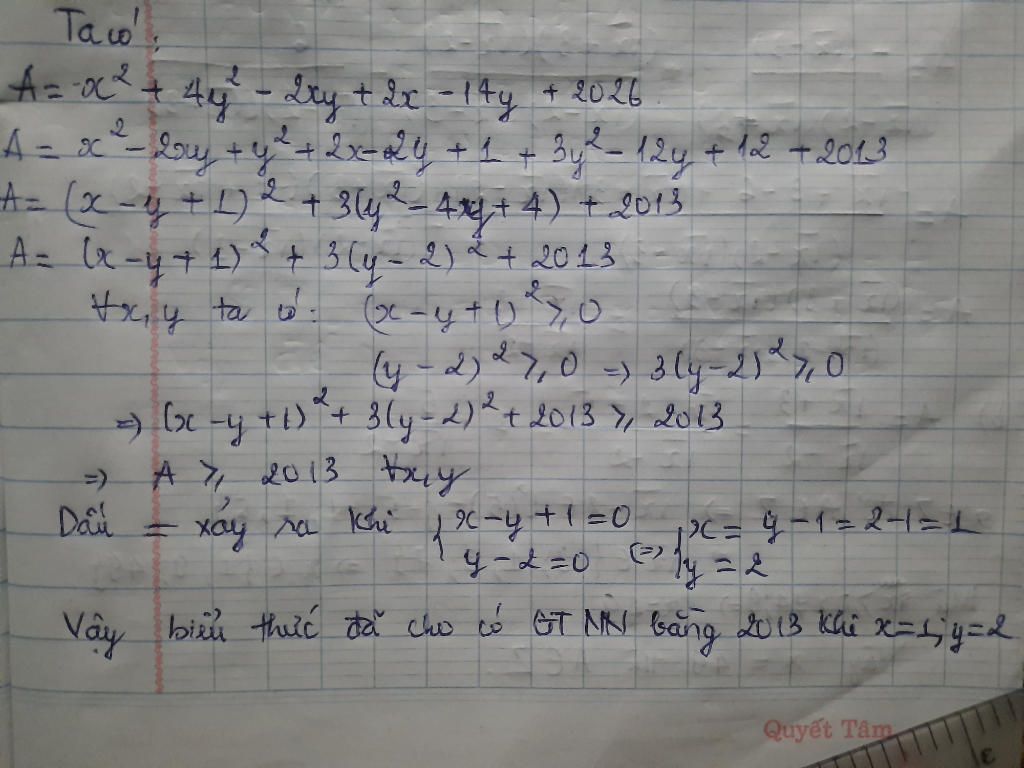 Ta có:
A = x² + 4y² - 2xy + 2x - 14y + 2026
A = x² - 2xy + y² + 2x - 2y + 1 + 3y² - 12y + 12 + 2013
A = (x - y + 1)² + 3(y² - 4y + 4) + 2013
A = (x - y + 1)² + 3(y - 2)² + 2013
∀x, y ta có: (x - y + 1)² ≥ 0
(y - 2)² ≥ 0 => 3(y - 2)² ≥ 0
=> (x - y + 1)² + 3(y - 2)² + 2013 ≥ 2013
=> A ≥ 2013 ∀x, y
Dấu = xảy ra khi { x - y + 1 = 0 <=> { x = y - 1 = 2 - 1 = 1
y - 2 = 0 y = 2
Vậy biểu thức đã cho có GTNN bằng 2013 khi x = 1; y = 2
Quyết Tâm
3